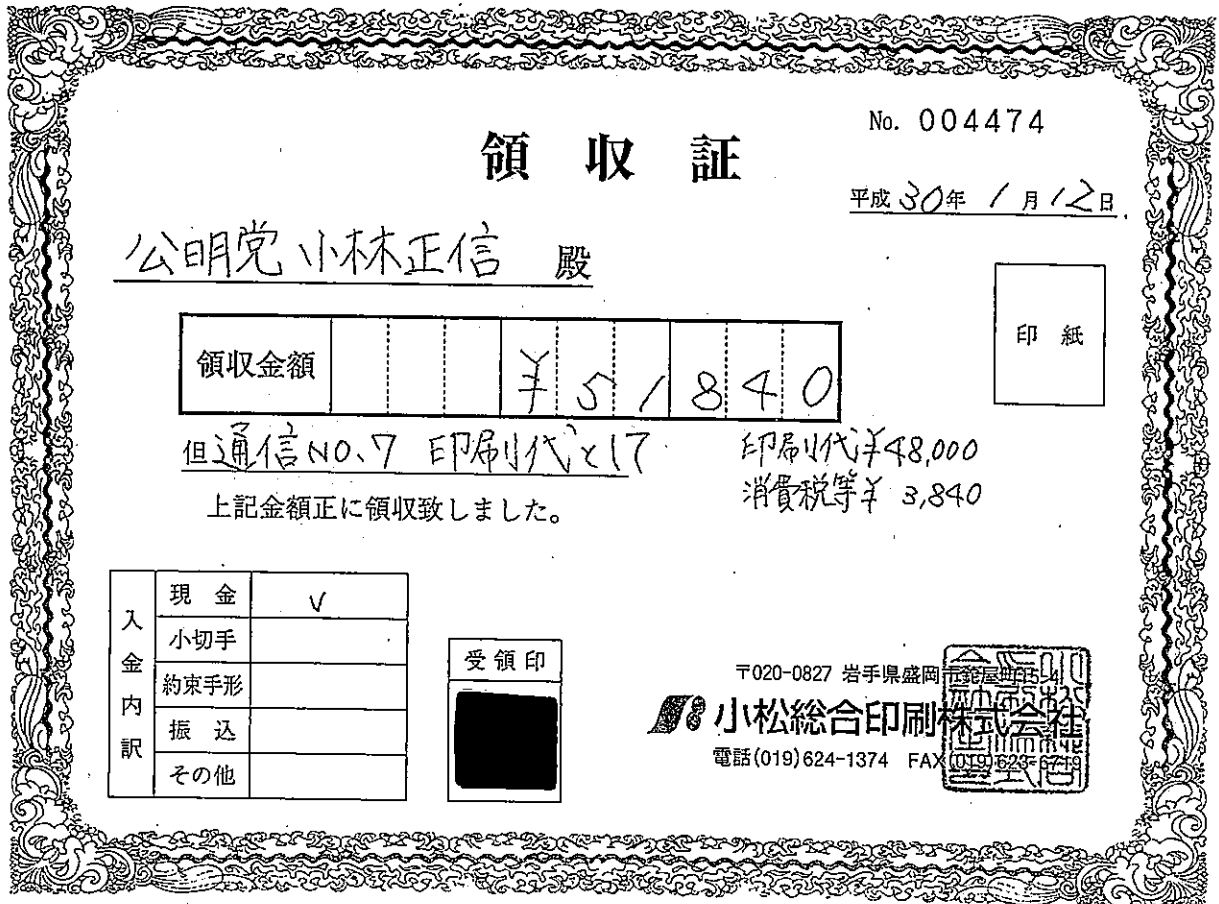 No. 004474
領収証
平成30年1月12日
公明党 小林正信 殿
印紙
領収金額 ¥51840
但通信NO.7 印刷代として
印刷代¥48,000
消費税等¥3,840
上記金額正に領収致しました。
入金内訳
現金 V
小切手
約束手形
振込
その他
受領印
〒020-0827 岩手県盛岡市
小松総合印刷株式会社
電話(019)624-1374 FAX(019)623-6719